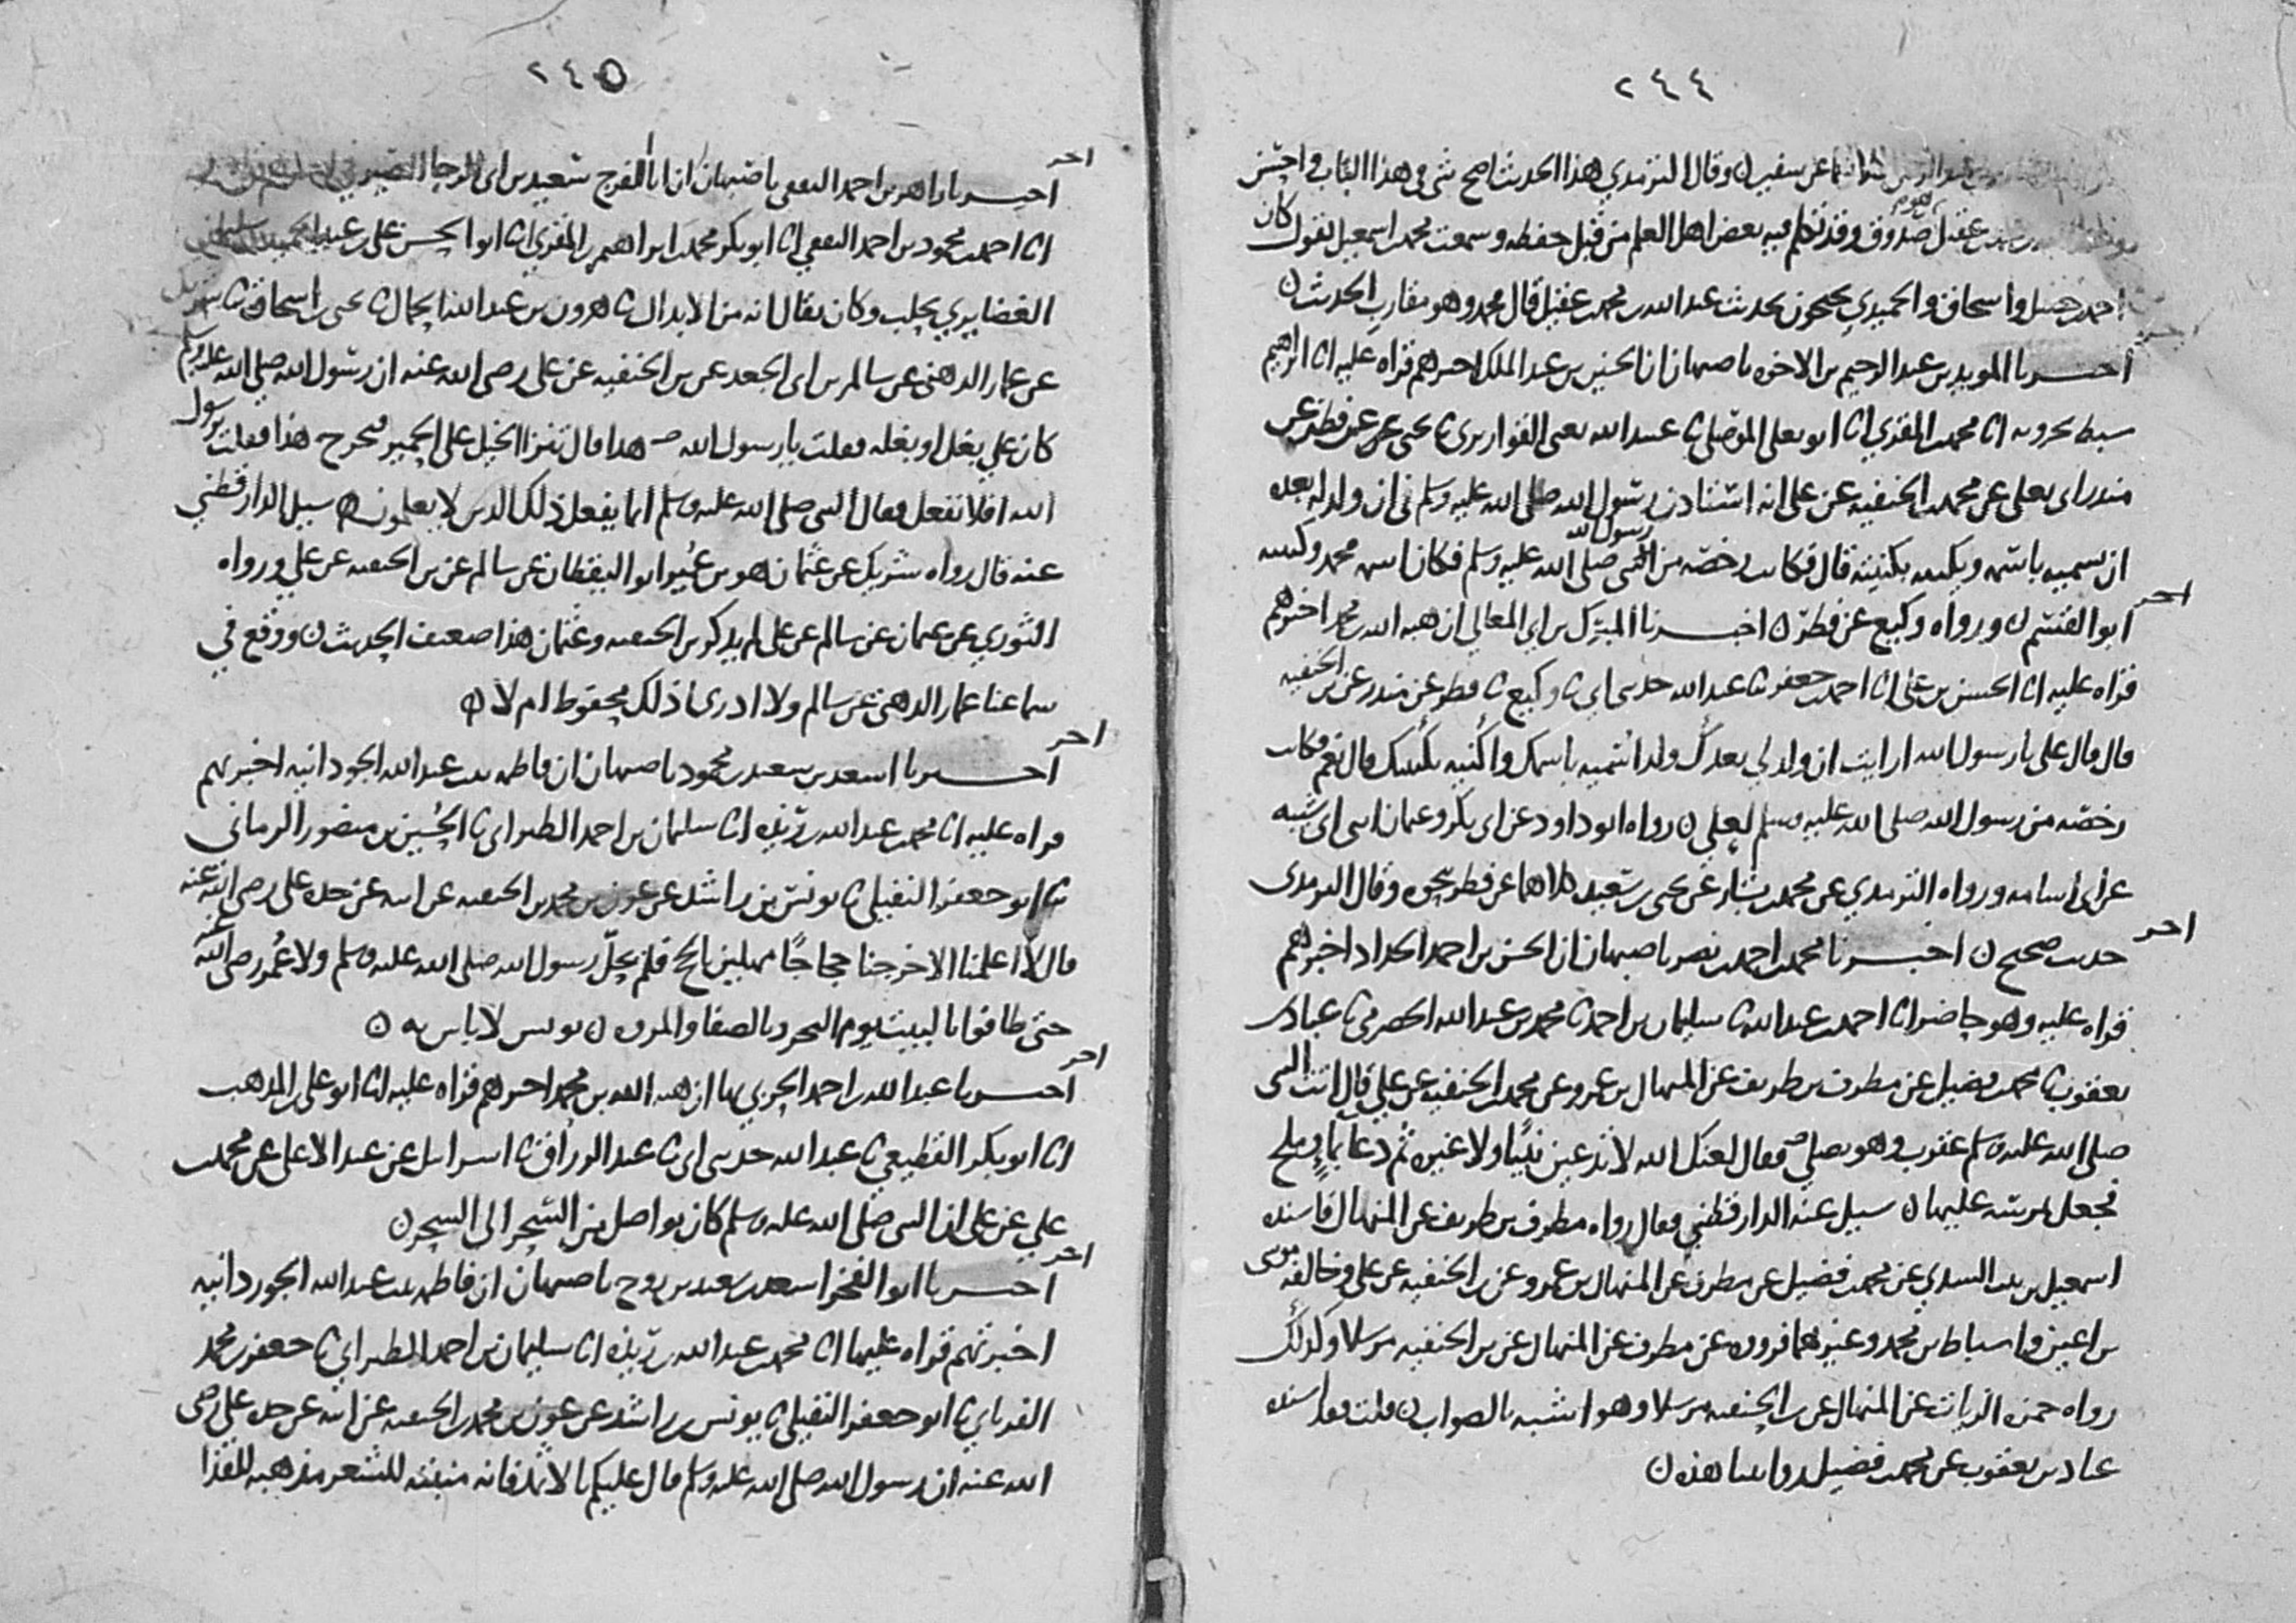 ٢٤٤
عن سفين ن وقال الترمذي هذا الحديث اصح شي في هذا الباب واحسن
عقيل هو صدوق وقد تكلم فيه بعض اهل العلم من قبل حفظه وسمعت محمد بن اسمعيل يقول كان
احمد بن حنبل واسحاق والحميدي يحتجون بحديث عبد الله بن محمد بن عقيل قال محمد وهو مقارب الحديث ن
اخبرنا المويد بن عبد الرحيم بن الاخوه باصبهان ان الحسين بن عبد الملك اخبرهم قراه عليه انا ابراهيم
سبط بحرويه انا محمد بن المقري انا ابو يعلى الموصلي ثنا عبيد الله يعني القواريري ثنا يحيى عن فطر عن
منذر ابي يعلى عن محمد بن الحنفيه عن علي انه استاذن رسول الله صلى الله عليه وسلم في ان ولد له بعده
ان يسميه باسمه ويكنيه بكنيته قال فكانت رخصه من رسول الله صلى الله عليه وسلم فكان اسمه محمد وكنيته
ابو القسم ن ورواه وكيع عن فطر ن اخبرنا المبرك بن ابي المعالي ان هبه الله بن محمد اخبرهم
اخر
قراه عليه انا الحسن بن علي انا احمد بن جعفر ثنا عبد الله حدثني ابي ثنا وكيع ثنا فطر عن منذر عن بن الحنفيه
قال قال علي يا رسول الله ارايت ان ولد لي بعدك ولد اسميه باسمك واكنيه بكنيتك قال نعم فكانت
رخصه من رسول الله صلى الله عليه وسلم لعلي ن رواه ابو داود عن ابي بكر وعثمان ابني ابي شيبه
عن ابي اسامه ورواه الترمذي عن محمد بن بشار عن يحيى بن سعيد كلاهما عن فطر بنحوه وقال الترمذي
حديث صحيح ن اخبرنا محمد بن احمد بن نصر باصبهان ان الحسن بن احمد الحداد اخبرهم
اخر
قراه عليه وهو حاضر انا احمد بن عبد الله ثنا سليمان بن احمد ثنا محمد بن عبد الله الحضرمي ثنا عباد بن
يعقوب ثنا محمد بن فضيل عن مطرف بن طريف عن المنهال بن عمرو عن محمد بن الحنفيه عن علي قال اتت النبي
صلى الله عليه وسلم عقرب وهو يصلي فقال لعنك الله لا تدعين نبيا ولا غيره ثم دعا بماء وملح
فجعل يمرسه عليها ن سيل عنه الدارقطني فقال رواه مطرف بن طريف عن المنهال فاسنده
اسمعيل بن بنت السدي عن محمد بن فضيل عن مطرف عن المنهال بن عمرو عن بن الحنفيه عن علي وخالفه موسى
بن اعين واسباط بن محمد وغيرهما فرووه عن مطرف عن المنهال عن بن الحنفيه مرسلا وكذلك
رواه حمزه الزيات عن المنهال عن بن الحنفيه مرسلا وهو اشبه بالصواب ن قلت وقد اسنده
عباد بن يعقوب عن محمد بن فضيل هذه ن
٢٤٥
اخر
اخبرنا زاهر بن احمد الثقفي باصبهان ان ابا الفرج سعيد بن ابي الرجا الصيرفي
انا احمد بن محمود بن احمد الثقفي انا ابو بكر محمد بن ابراهيم بن المقري انا ابو الحسن علي بن عبد الحميد بن سليمان
الغضايري بحلب وكان يقال انه من الابدال ثنا هرون بن عبد الله الحمال ثنا يحيى بن اسحاق ثنا شريك
عن عمار الدهني عن سالم بن ابي الجعد عن بن الحنفيه عن علي رضي الله عنه ان رسول الله صلى الله عليه وسلم
كان على بغل او بغله فقلت يا رسول الله هذا قال تنزا الخيل على الحمير فيخرج هذا فقلت يا رسول
الله افلا نفعل فقال النبي صلى الله عليه وسلم انما يفعل ذلك الذين لا يعلمون ن سيل الدارقطني
عنه قال رواه شريك عن عثمان هو بن عمير ابو اليقظان عن سالم عن بن الحنفيه عن علي ورواه
الثوري عن عثمان عن سالم عن علي لم يذكر بن الحنفيه وعثمان هذا ضعيف الحديث ن ووقع في
سماعنا عمار الدهني عن سالم ولا ادري اذلك محفوظ ام لا ن
اخر
اخبرنا اسعد بن سعيد بن محمود باصبهان ان فاطمه بنت عبد الله الجوزدانيه اخبرتهم
قراه عليه انا محمد بن عبد الله بن ريذه انا سليمان بن احمد الطبراني ثنا الحسين بن منصور الرماني
ثنا ابو جعفر النفيلي ثنا يونس بن راشد عن عون بن محمد بن الحنفيه عن ابيه عن جده علي رضي الله عنه
قال لا اعلمنا الا خرجنا حجاجا مهلين بالحج فلم يحل رسول الله صلى الله عليه وسلم ولا عمر رضي الله عنه
حتى طافوا بالبيت يوم النحر وبالصفا والمروه ن يونس لا باس به ن
اخر
اخبرنا عبد الله بن احمد الحربي بها ان هبه الله بن محمد اخبرهم قراه عليه انا ابو علي بن المذهب
انا ابو بكر القطيعي ثنا عبد الله حدثني ابي ثنا عبد الرزاق ثنا اسرائيل عن عبد الاعلى عن محمد بن
علي عن علي ان النبي صلى الله عليه وسلم كان يواصل من السحر الى السحر ن
اخر
اخبرنا ابو الفخر اسعد بن سعيد بن روح باصبهان ان فاطمه بنت عبد الله الجوزدانيه
اخبرتهم قراه عليها انا محمد بن عبد الله بن ريذه انا سليمان بن احمد الطبراني ثنا جعفر بن محمد
الفريابي ثنا ابو جعفر النفيلي ثنا يونس بن راشد عن عون بن محمد بن الحنفيه عن ابيه عن جده علي رضي
الله عنه ان رسول الله صلى الله عليه وسلم قال عليكم بالاثمد فانه منبته للشعر مذهبه للقذا